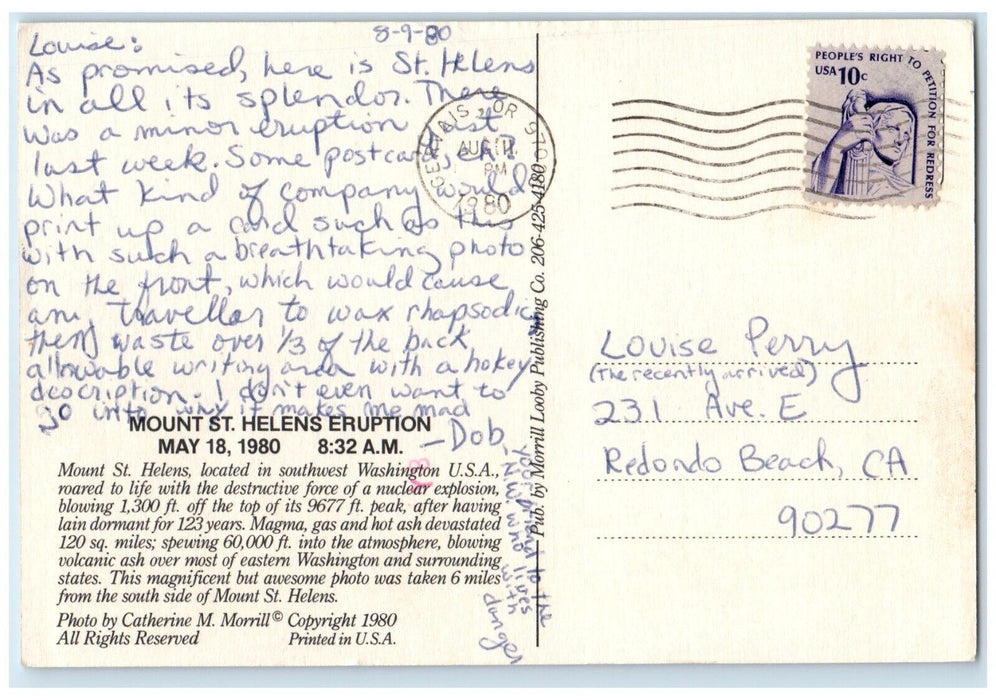 8-9-80
Louise:
As promised, here is St. Helens
in all its splendor. There
was a minor eruption just
last week. Some postcard, eh?
What kind of company would
print up a card such as this
with such a breathtaking photo
on the front, which would cause
any traveller to wax rhapsodic,
then waste over 1/3 of the back
allowable writing area with a hokey
description. I don't even want to
go into why it makes me mad
—Dob
your friend to the
NW who lives
with
danger
MOUNT ST. HELENS ERUPTION
MAY 18, 1980 8:32 A.M.
Mount St. Helens, located in southwest Washington U.S.A.,
roared to life with the destructive force of a nuclear explosion,
blowing 1,300 ft. off the top of its 9677 ft. peak, after having
lain dormant for 123 years. Magma, gas and hot ash devastated
120 sq. miles; spewing 60,000 ft. into the atmosphere, blowing
volcanic ash over most of eastern Washington and surrounding
states. This magnificent but awesome photo was taken 6 miles
from the south side of Mount St. Helens.
Photo by Catherine M. Morrill © Copyright 1980
All Rights Reserved Printed in U.S.A.
Pub. by Morrill Looby Publishing Co. 206-425-4180
OR
AUG 11
PM
1980
PEOPLE'S RIGHT TO PETITION FOR REDRESS
USA 10c
Louise Perry
(the recently arrived)
231 Ave. E
Redondo Beach, CA
90277